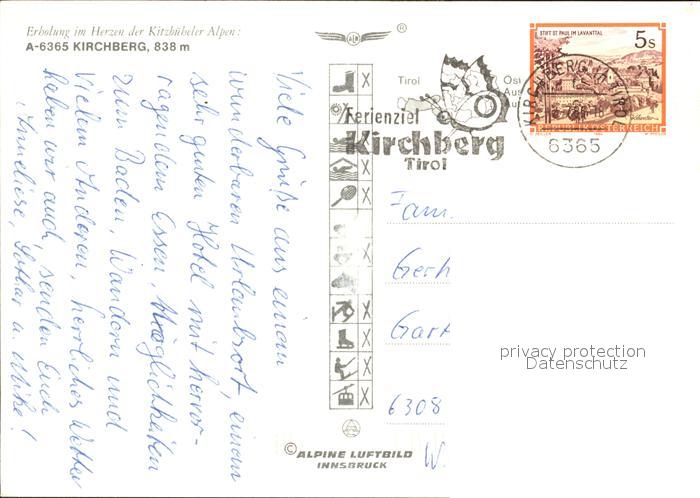 Erholung im Herzen der Kitzbüheler Alpen:
A-6365 KIRCHBERG, 838 m
Viele Grüße aus einem
wunderbaren Urlaubsort, einem
sehr guten Hotel mit hervor-
ragendem Essen, Möglichkeiten
zum Baden, Wandern und
Vielem Anderen, herrliches Wetter
haben wir auch, senden Euch
Anneliese, Lothar u. Mike!
®
X
X
X
X
X
X
X
© ALPINE LUFTBILD
INNSBRUCK
Tirol
Ferienziel
Kirchberg
Tirol
KIRCHBERG
6365
STIFT ST. PAUL IM LAVANTTAL
5s
REPUBLIK ÖSTERREICH
Fam.
Gerh
Gart
6308
W.
privacy protection
Datenschutz